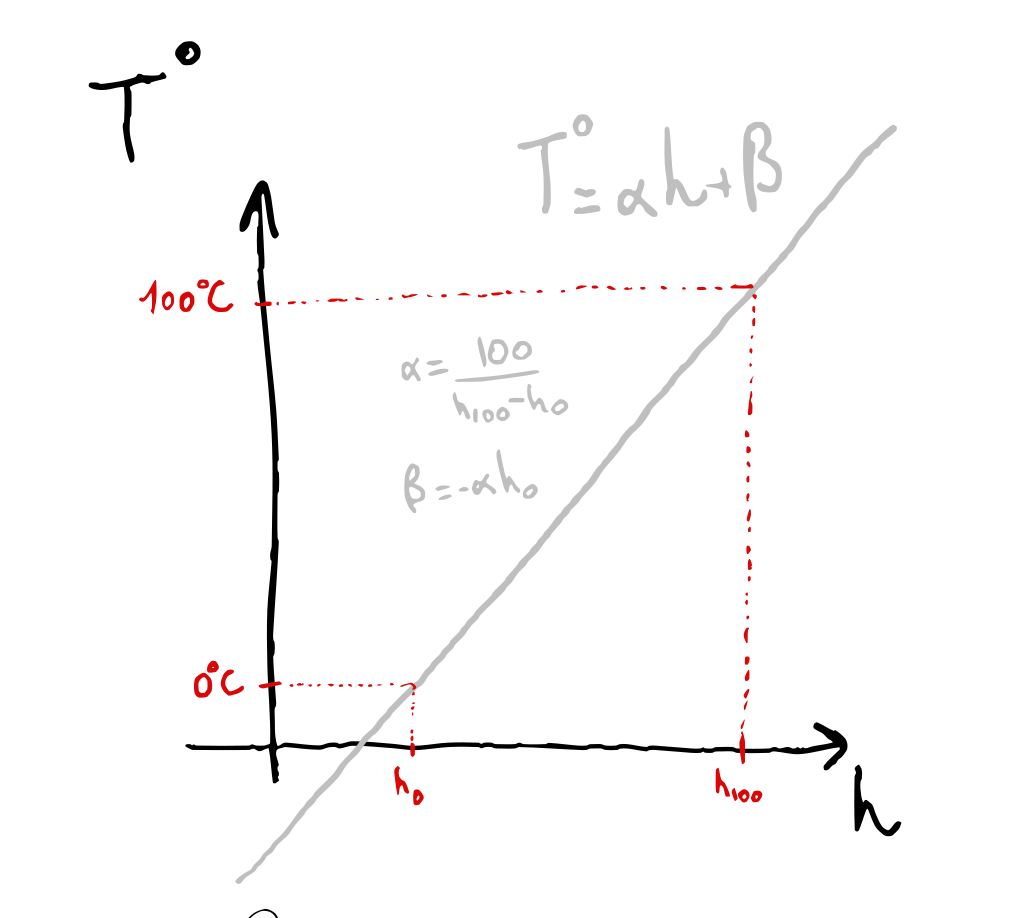 T°
T° = αh + β
100°C
α = 100 / (h₁₀₀ - h₀)
β = -αh₀
0°C
h₀
h₁₀₀
h